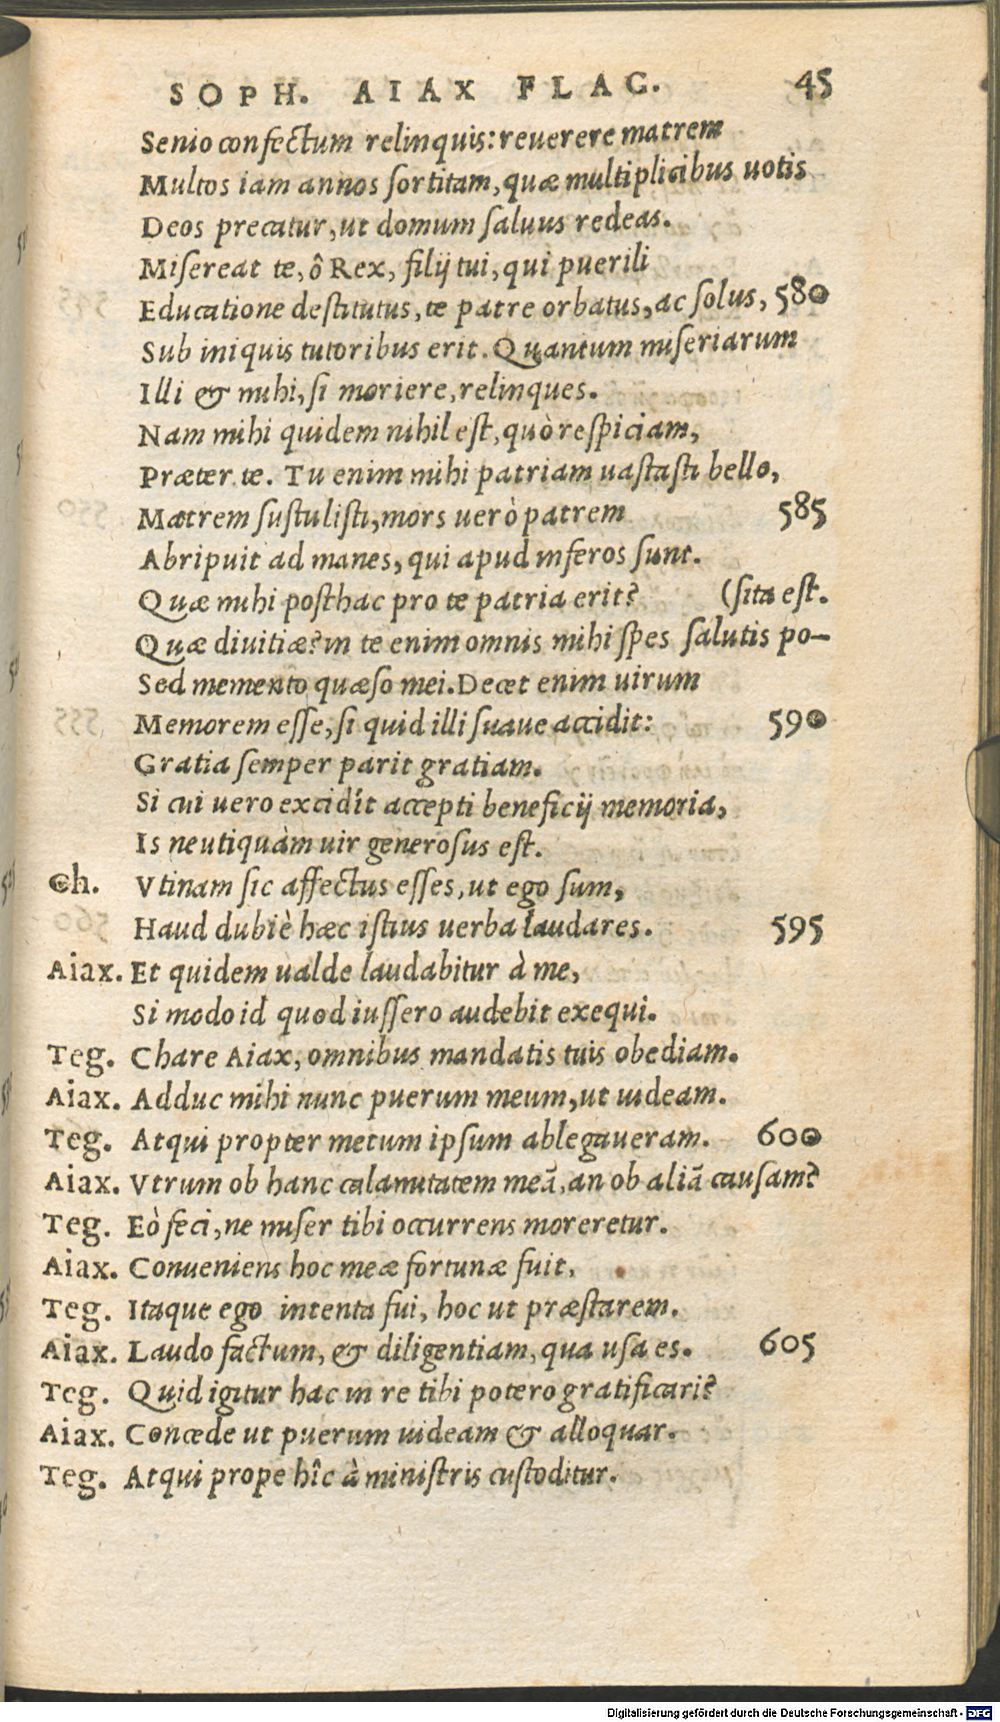 SOPH. AIAX FLAG. 45
Senio confectum relinquis: reuerere matrem
Multos iam annos sortitam, quæ multiplicibus uotis
Deos precatur, ut domum saluus redeas.
Misereat te, ô Rex, filij tui, qui puerili
Educatione destitutus, te patre orbatus, ac solus, 580
Sub iniquis tutoribus erit. Quantum miseriarum
Illi & mihi, si moriere, relinques.
Nam mihi quidem nihil est, quò respiciam,
Præter te. Tu enim mihi patriam uastasti bello,
Matrem sustulisti, mors uerò patrem 585
Abripuit ad manes, qui apud inferos sunt.
Quæ mihi posthac pro te patria erit? (sita est.
Quæ divitiæ? in te enim omnis mihi spes salutis po-
Sed memento quæso mei. Decet enim uirum
Memorem esse, si quid illi suaue accidit: 590
Gratia semper parit gratiam.
Si cui uero excidit accepti beneficij memoria,
Is neutiquàm uir generosus est.
Ch. Vtinam sic affectus esses, ut ego sum,
Haud dubiè hæc istius uerba laudares. 595
Aiax. Et quidem ualde laudabitur à me,
Si modo id quod iussero audebit exequi.
Teg. Chare Aiax, omnibus mandatis tuis obediam.
Aiax. Adduc mihi nunc puerum meum, ut uideam.
Teg. Atqui propter metum ipsum ablegaueram. 600
Aiax. Vtrum ob hanc calamitatem meã, an ob aliã causam?
Teg. Eò feci, ne miser tibi occurrens moreretur.
Aiax. Conueniens hoc meæ fortunæ fuit.
Teg. Itaque ego intenta fui, hoc ut præstarem.
Aiax. Laudo factum, & diligentiam, qua usa es. 605
Teg. Quid igitur hac in re tibi potero gratificari?
Aiax. Concede ut puerum uideam & alloquar.
Teg. Atqui prope hîc à ministris custoditur.
Digitalisierung gefördert durch die Deutsche Forschungsgemeinschaft - DFG